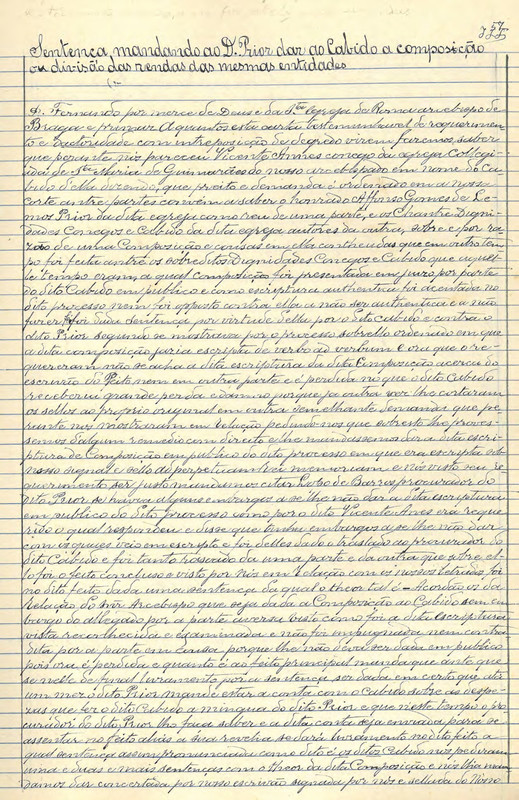 Sentença, mandando ao D. Prior dar ao Cabido a composição
ou divisão das rendas das mesmas entidades
D. Fernando por merce de Deus e da Sta Egreja de Roma arcebispo de
Braga e primaz A quantos esta carta testemunhavel de requerimen
to e d'autoridade com entreposição de degredo virem faremos saber
que perante nós pareceu Vicente Annes conego da egreja Collegi
ada de Sta Maria de Guimarães do nosso arcebispado em nome do Ca
bido d'ella dizendo, que preito e demanda é ordenado em a nossa
corte antre partes convem a saber o honrado Affonso Gomes de Le
mos Prior da dita egreja como reu de uma parte, e os Chantre Digni
dades Conegos e Cabido da dita egreja autores da outra, sobre e por ra
zão de uma Composição e cousas em ella contheudas que em outro tem
po foi feita antre os sobreditos Dignidades Conegos e Cabido que aquel
le tempo eram, a qual composição foi presentada em juizo por parte
do dito Cabido em publico e como escriptura authentica foi acentada no
dito processo nem foi opposto contra ella a não ser authentica e a não
fazer fé foi dada sentença por virtude d'ella por o dito cabido e contra o
dito Prior segundo se mostrava por o processo sobr'ello ordenado em que
a dita composição jazia escripta de verbo ad verbum e ora que o re
quereram não se acha a dita escriptura da dita Composição acerca do
escrivão do Feito nem em outra parte e é perdida no que o dito Cabido
receberia grande perda e damno porque já outra vez lhe cortaram
os sellos ao proprio original em outra semelhante demanda que pe
rante nós mostraram em Relação pedindo-nos que a esto lhe proves
semos d'algum remedio com direito e lhe mandassemos dar a dita escri
ptura de Composição em publico do dito processo em que era escripta sob
nosso signal e sello ad perpetuam rei memoriam e nós visto seu re
querimento ser justo mandamos citar Pedro de Barros procurador do
dito Prior, se havia alguns embargos a se lhe não dar a dita escriptura
em publico do dito processo como por o dito Vicente Anes era reque
rido o qual respondeu e disse que tenha embargos a se lhe não dar
com os quaes veio em escripto e foi d'elles dado o traslado ao procurador do
dito Cabido e foi tanto razoado da uma parte e da outra que sobre el
lo foi o feito concluso e visto por Nós em Relação com os nossos letrados foi
no dito feito dada uma sentença da qual o theor tal é = Acordão os da
Relação do Snr Arcebispo que seja dada a Composição ao Cabido sem em
bargo do allegado por a parte aversa visto como foi a dita Escriptura
vista reconhecida e examinada e não foi impugnada nem contra
dita por a parte em causa porque lhe não deva ser dada em publico
pois ora é perdida e quanto é ao feito principal manda que ante que
se n'este dê final livramento por a sentença ser dada em certo que diz
um mez o dito Prior mande estar a conta com o Cabido sobre as despe
zas que fez o dito Cabido a mingua do dito Prior e que neste tempo o pro
curador do dito Prior lho faça saber e a dita conta seja enviada para se
assentar no feito alias a sua revelia se dará livramento no dito feito a
qual sentença assim pronunciada como dito é os ditos Cabido nos pediram
uma e duas e mais sentenças com o theor da dita Composição e nós lha man
damos dar concertada por nosso escrivão signada por nós e sellada do Nosso